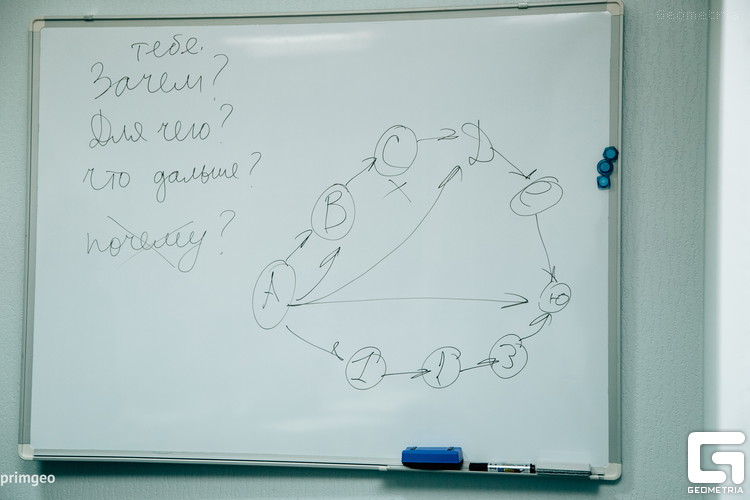 тебе.
Зачем?
Для чего?
что дальше?
почему?
A
B
C
Д
e
ю
1
3
primgeo
Geometria
G
GEOMETRIA